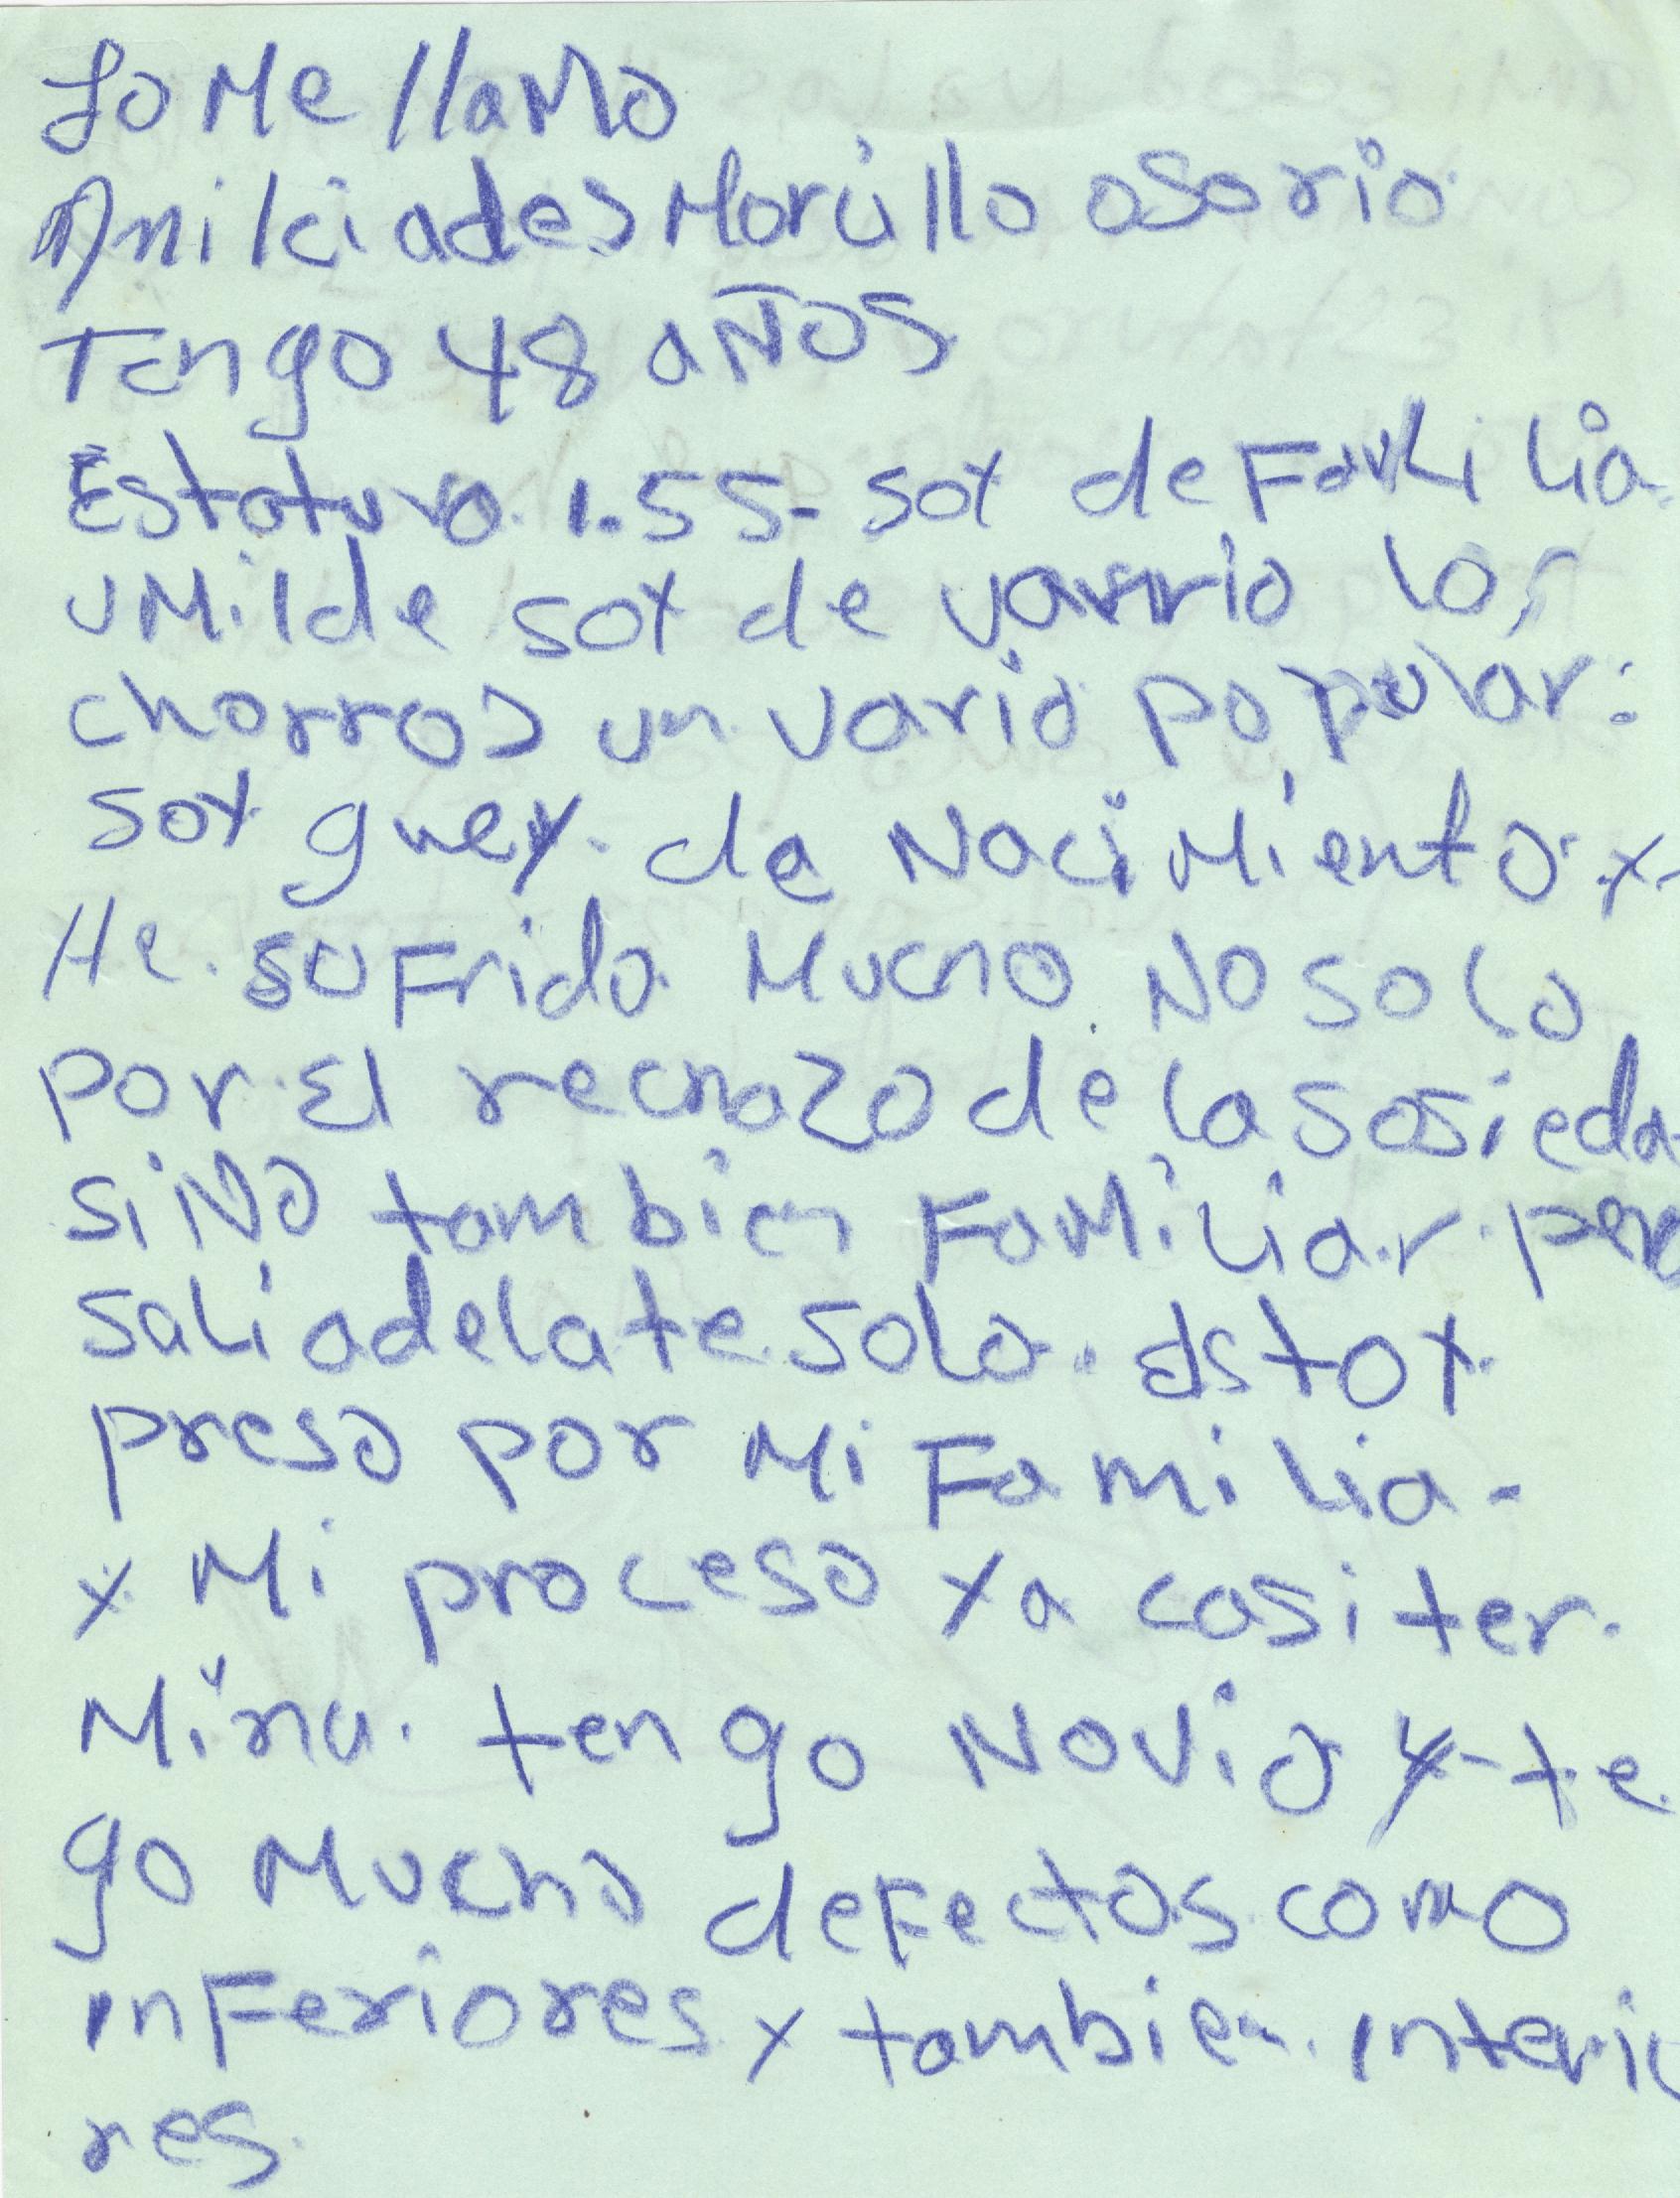 Yo Me llaMo
Amilciades Morúllo osorio
Tengo 48 aÑOS
Estatura 1.55- soy de FaMilia
uMilde soy de varrio los
chorros un vario popular:
soy guey. de NaciMiento y-
He. SuFrido Mucho No solo
por El rechazo de la sosieda
SiNo tambien FaMiliar. pero
Sali adelate solo. Estoy
preso por Mi Familia-
y Mi proceso ya casi ter.
Mina. tengo Novio y-te
go Mucho deFectos como
inFeriores y tambien. interio
res.